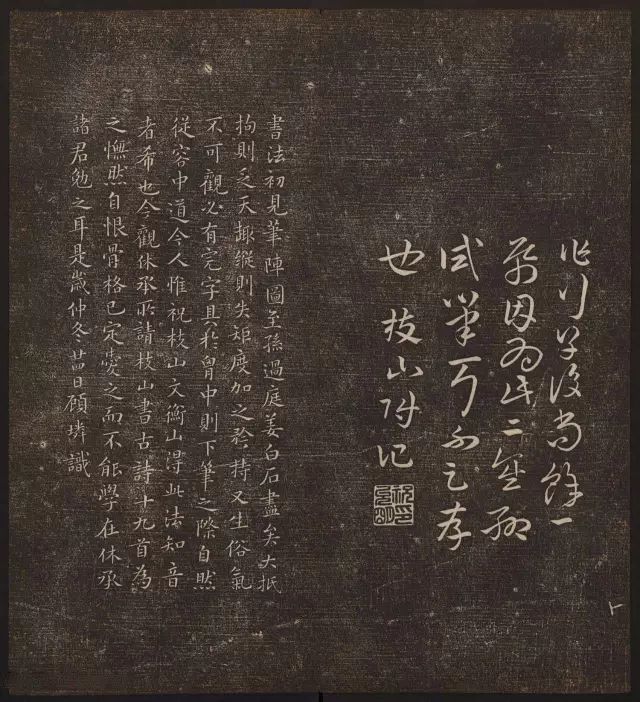 後尚餘一
因為此二
試筆耳不足存
也 枝山附記
書法初見筆陣圖至孫過庭姜白石盡矣大抵
拘則乏天趣縱則失矩度加之矜持又生俗氣
不可觀必有完字具於胷中則下筆之際自然
從容中道今人惟祝枝山文衡山得此法知音
者希也今觀休承所請枝山書古詩十九首為
之憮然自恨骨格已定愛之而不能學在休承
諸君勉之耳是歲仲冬日顧璘識